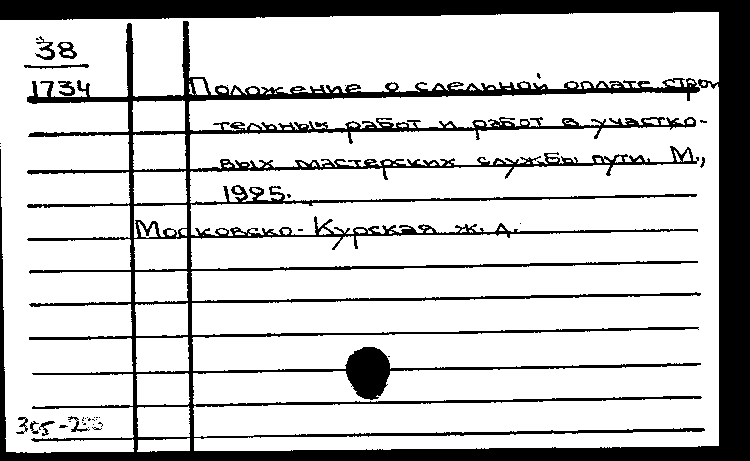 38
1734
Положение о сдельной оплате строи
тельных работ и работ в участко-
вых мастерских службы пути. М.,
1925.
Московско-Курская ж. д.